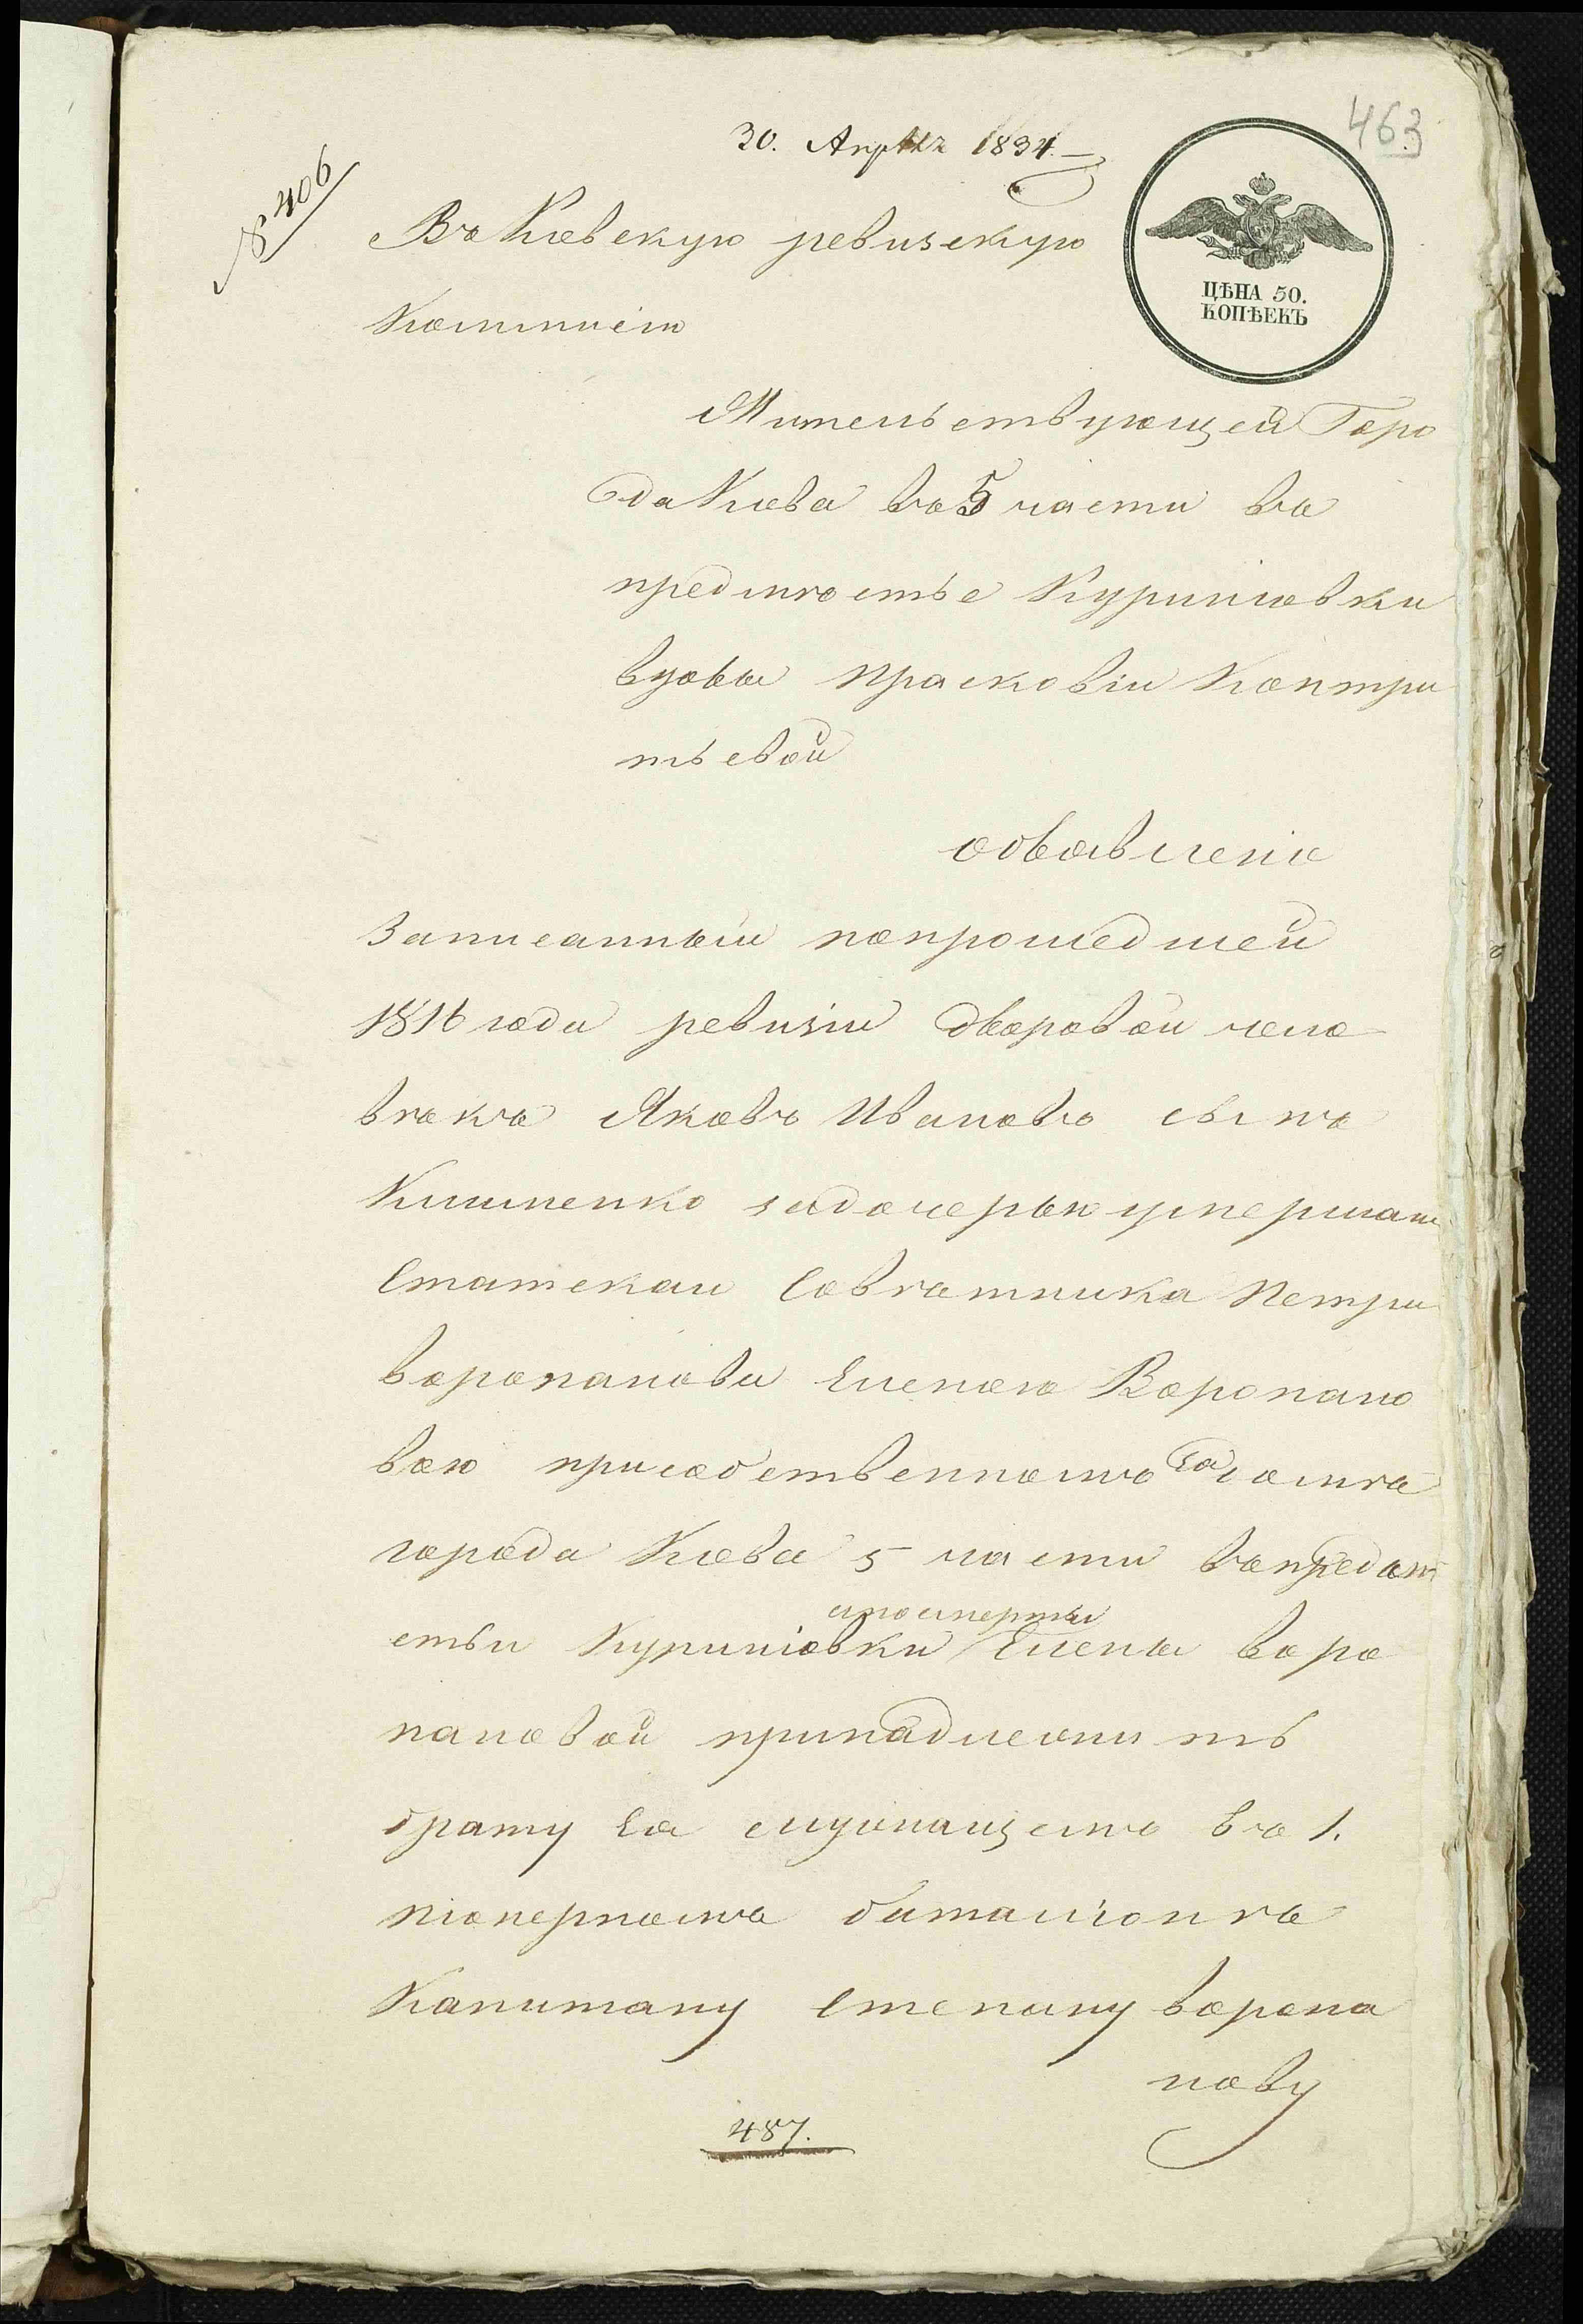 463
30. Апрѣля 1834.
№ 406
ЦѢНА 50.
КОПѢЕКЪ
Въ Киевскую ревизскую
Комиисию
Жительствующей Горо
да Киева въ 5 части въ
предмѣстье Куриниовки
вдовы Прасковiи Контри
тьевой
объявление
Записанный попрошедшей
1816 года ревизiи дворовой чело
вѣкъ Яковъ Ивановъ сынъ
Клименко задочерью умершаги
Статскаи Совѣтника Петра
воропанова Еленою Воропано
вою присобственномъ Еа домѣ
города Киева 5 части въ предам
стьи Куриниовки посмерти Елены воро
пановой принадлежить
брату Еа служащемъ въ 1.
пionерномъ баталiонѣ
Капитану степану воропа
нову
487.